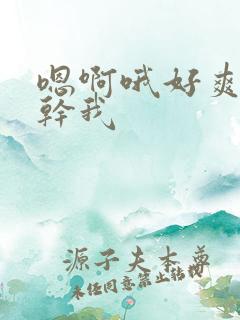 嗯啊哦好爽
幹我
源子夫本尊
未任同意禁止转载